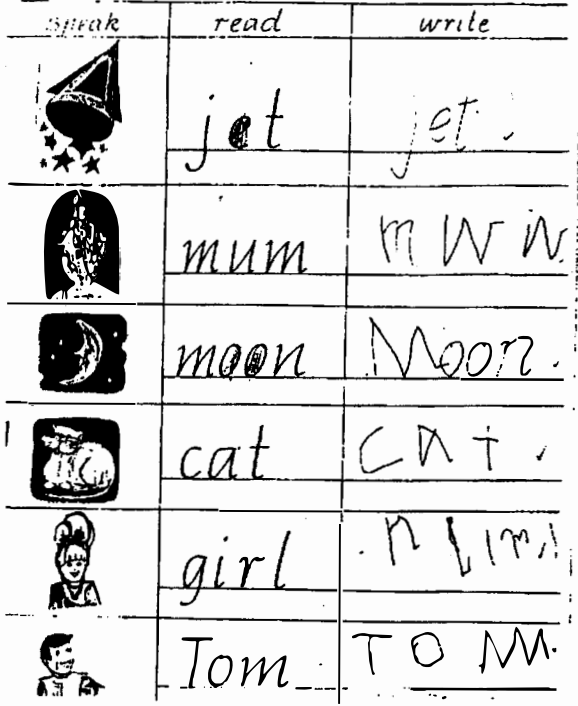 speak read write
jet jet.
mum m w w
moon Moon.
cat cat.
girl
Tom TOM.